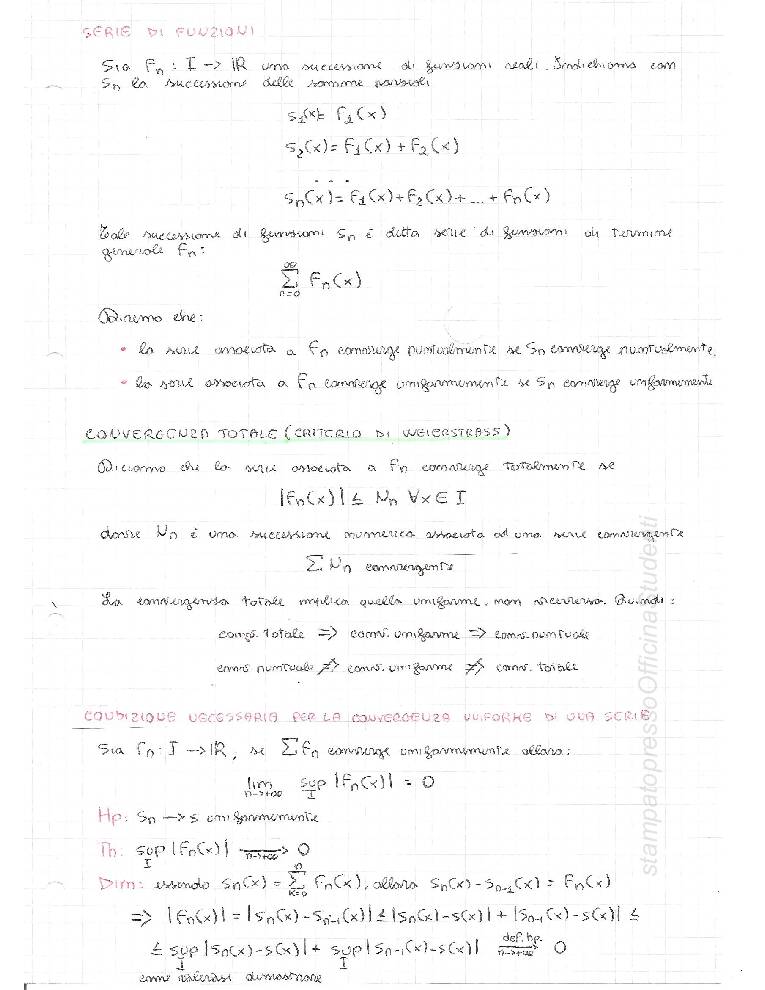 SERIE DI FUNZIONI
Sia Fn : I -> IR una successione di funzioni reali. Indichiamo con
Sn la successione delle somme parziali
S1(x)= F1(x)
S2(x)= F1(x) + F2(x)
. . .
Sn(x)= F1(x)+F2(x)+ ... + Fn(x)
Tale successione di funzioni Sn è detta serie di funzioni di termine
generale Fn:
∑_{n=0}^{∞} Fn(x)
Diremo che:
• la serie associata a Fn converge puntualmente se Sn converge puntualmente.
• la serie associata a Fn converge uniformemente se Sn converge uniformemente
CONVERGENZA TOTALE (CRITERIO DI WEIERSTRASS)
Diciamo che la serie associata a Fn converge totalmente se
|Fn(x)| ≤ Mn ∀x∈ I
dove Mn è una successione numerica associata ad una serie convergente
∑ Mn convergente
La convergenza totale implica quella uniforme, non viceversa. Quindi:
conv. totale => conv. uniforme => conv. puntuale
conv. puntuale ≠> conv. uniforme ≠> conv. totale
CONDIZIONE NECESSARIA PER LA CONVERGENZA UNIFORME DI UNA SERIE
Sia Fn: I -> IR, se ∑ Fn converge uniformemente allora:
lim_{n->+∞} sup_I |Fn(x)| = 0
Hp: Sn -> S uniformemente
Th: sup_I |Fn(x)| ->_{n->+∞} 0
Dim: essendo Sn(x) = ∑_{k=0}^{n} Fn(x), allora Sn(x) - Sn-1(x) = Fn(x)
=> |Fn(x)| = |Sn(x) - Sn-1(x)| ≤ |Sn(x) - S(x)| + |Sn-1(x) - S(x)| ≤
≤ sup_I |Sn(x) - S(x)| + sup_I |Sn-1(x) - S(x)| ->^{def. hp.}_{n->+∞} 0
come volevasi dimostrare
stampatopressoOfficinastudenti